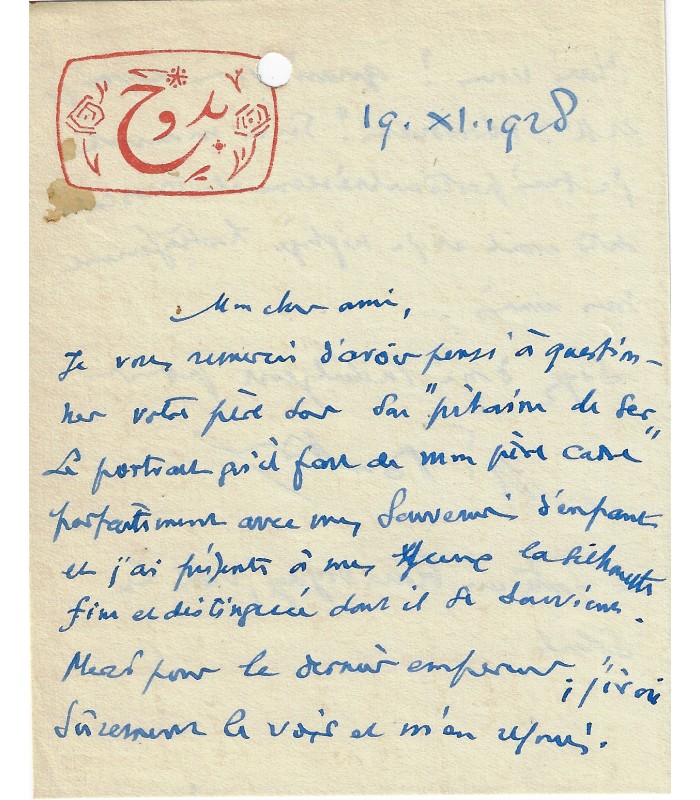 بدوح
19.XI.1928
Mon cher ami,
Je vous remercie d'avoir pensé à question-
ner votre père sur son "pitaine de
Le portrait qu'il fait de mon père cadre
parfaitement avec mes souvenirs d'enfant
et j'ai présente à mes yeux la silhouette
fine et distinguée dont il se souvient.
Merci pour le dernier empereur, j'irai
sûrement le voir et m'en réjouis.